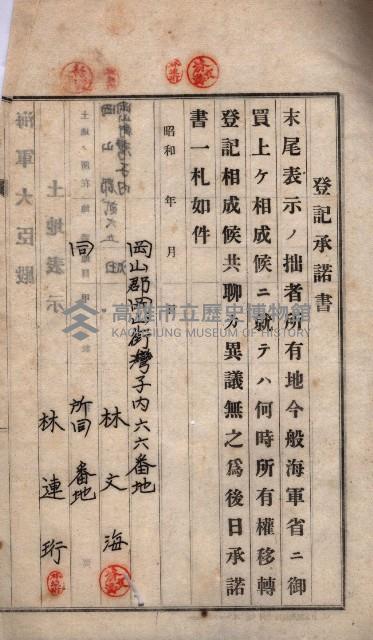 登記承諾書
末尾表示ノ拙者所有地今般海軍省ニ御
買上ケ相成候ニ就テハ何時所有權移轉
登記相成候共聊カ異議無之爲後日承諾
書一札如件
昭和 年 月
岡山郡岡山街灣子內六六番地
林文海
同所同番地
林連珩
海軍大臣殿
土地表示
高雄市立歷史博物館
KAOHSIUNG MUSEUM OF HISTORY